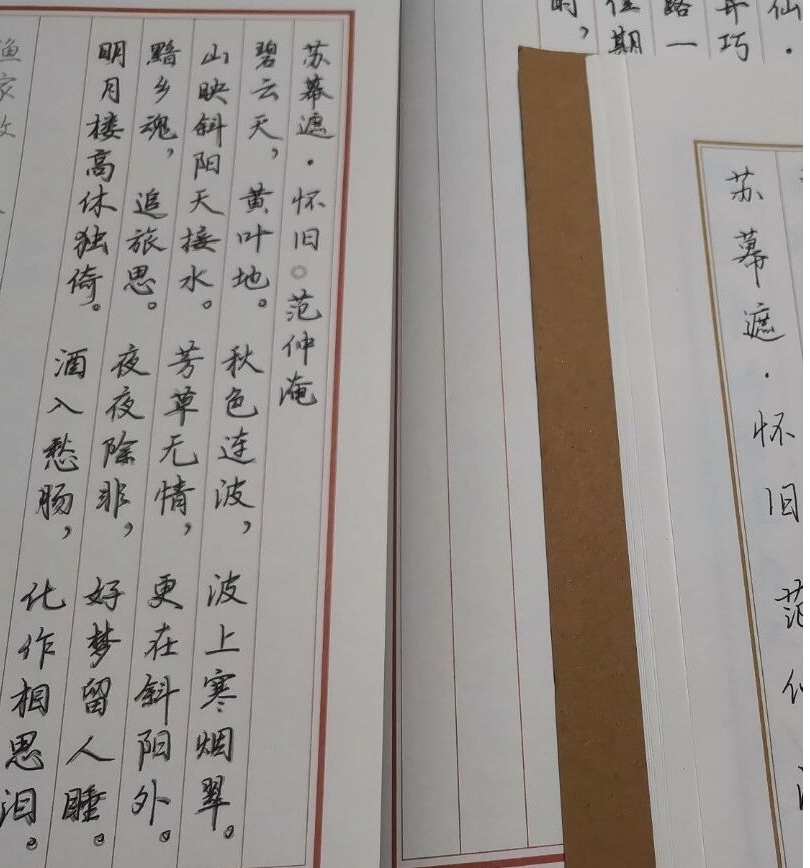 仙·
弄巧
路一
佳期
时，
苏幕遮·怀旧
苏幕遮·怀旧。范仲淹
碧云天，黄叶地。秋色连波，波上寒烟翠。
山映斜阳天接水。芳草无情，更在斜阳外。
黯乡魂，追旅思。夜夜除非，好梦留人睡。
明月楼高休独倚。酒入愁肠，化作相思泪。
渔家